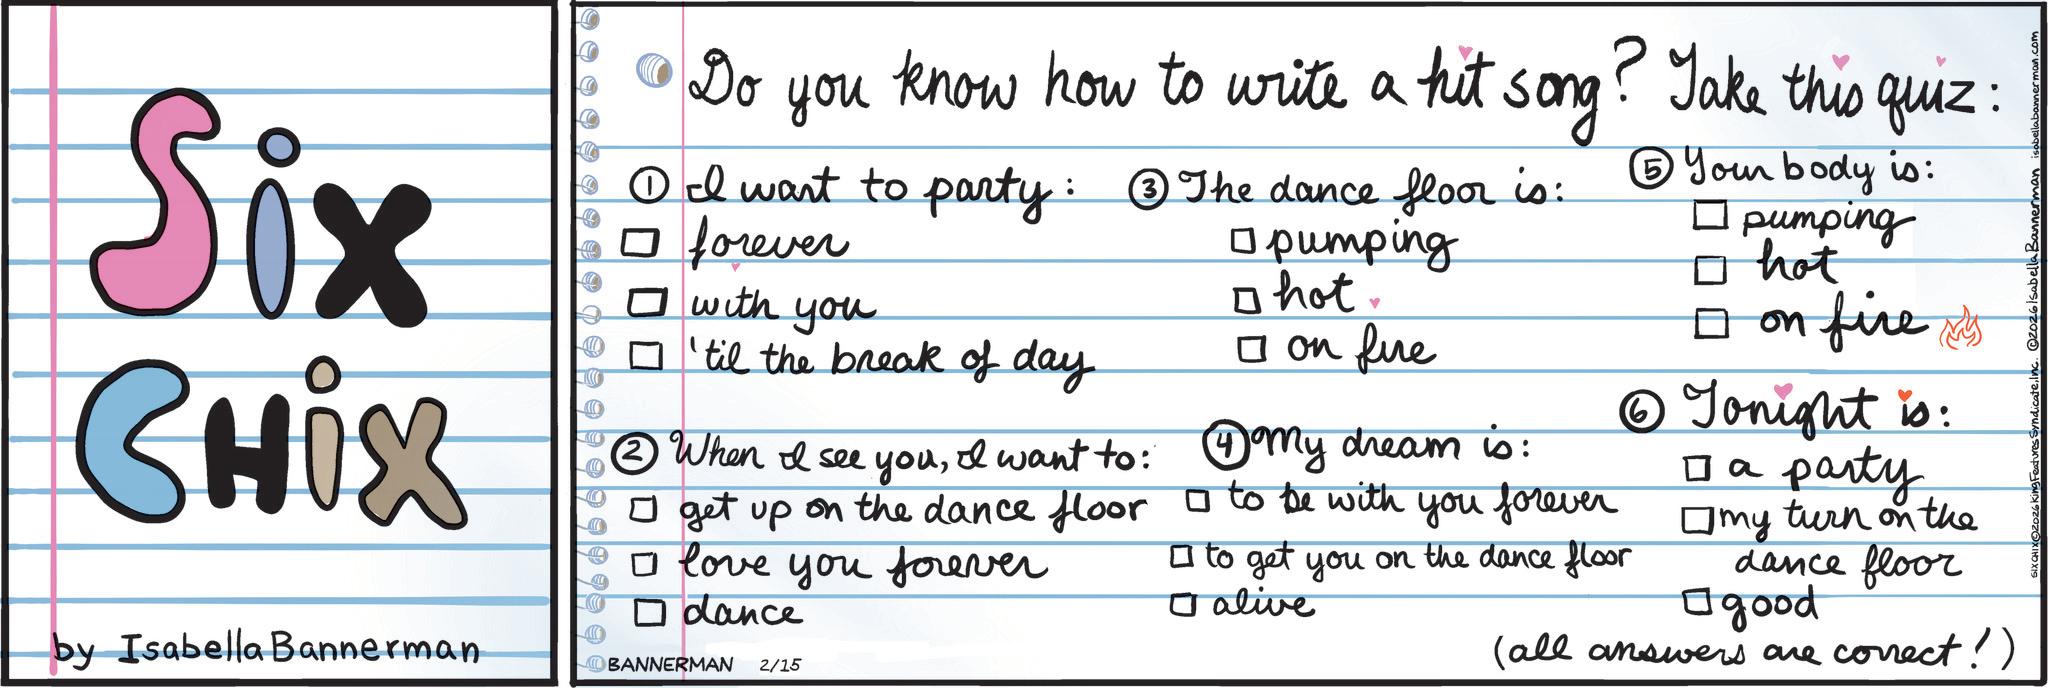 Six
CHiX
by Isabella Bannerman
Do you know how to write a hit song? Take this quiz:
① I want to party:
forever
with you
'til the break of day
② When I see you, I want to:
get up on the dance floor
love you forever
dance
③ The dance floor is:
pumping
hot
on fire
④ My dream is:
to be with you forever
to get you on the dance floor
alive
⑤ Your body is:
pumping
hot
on fire
⑥ Tonight is:
a party
my turn on the
dance floor
good
(all answers are correct!)
BANNERMAN 2/15
SIX CHIX©2026 King Features Syndicate, Inc. ©2026 Isabella Bannerman isabellabannerman.com